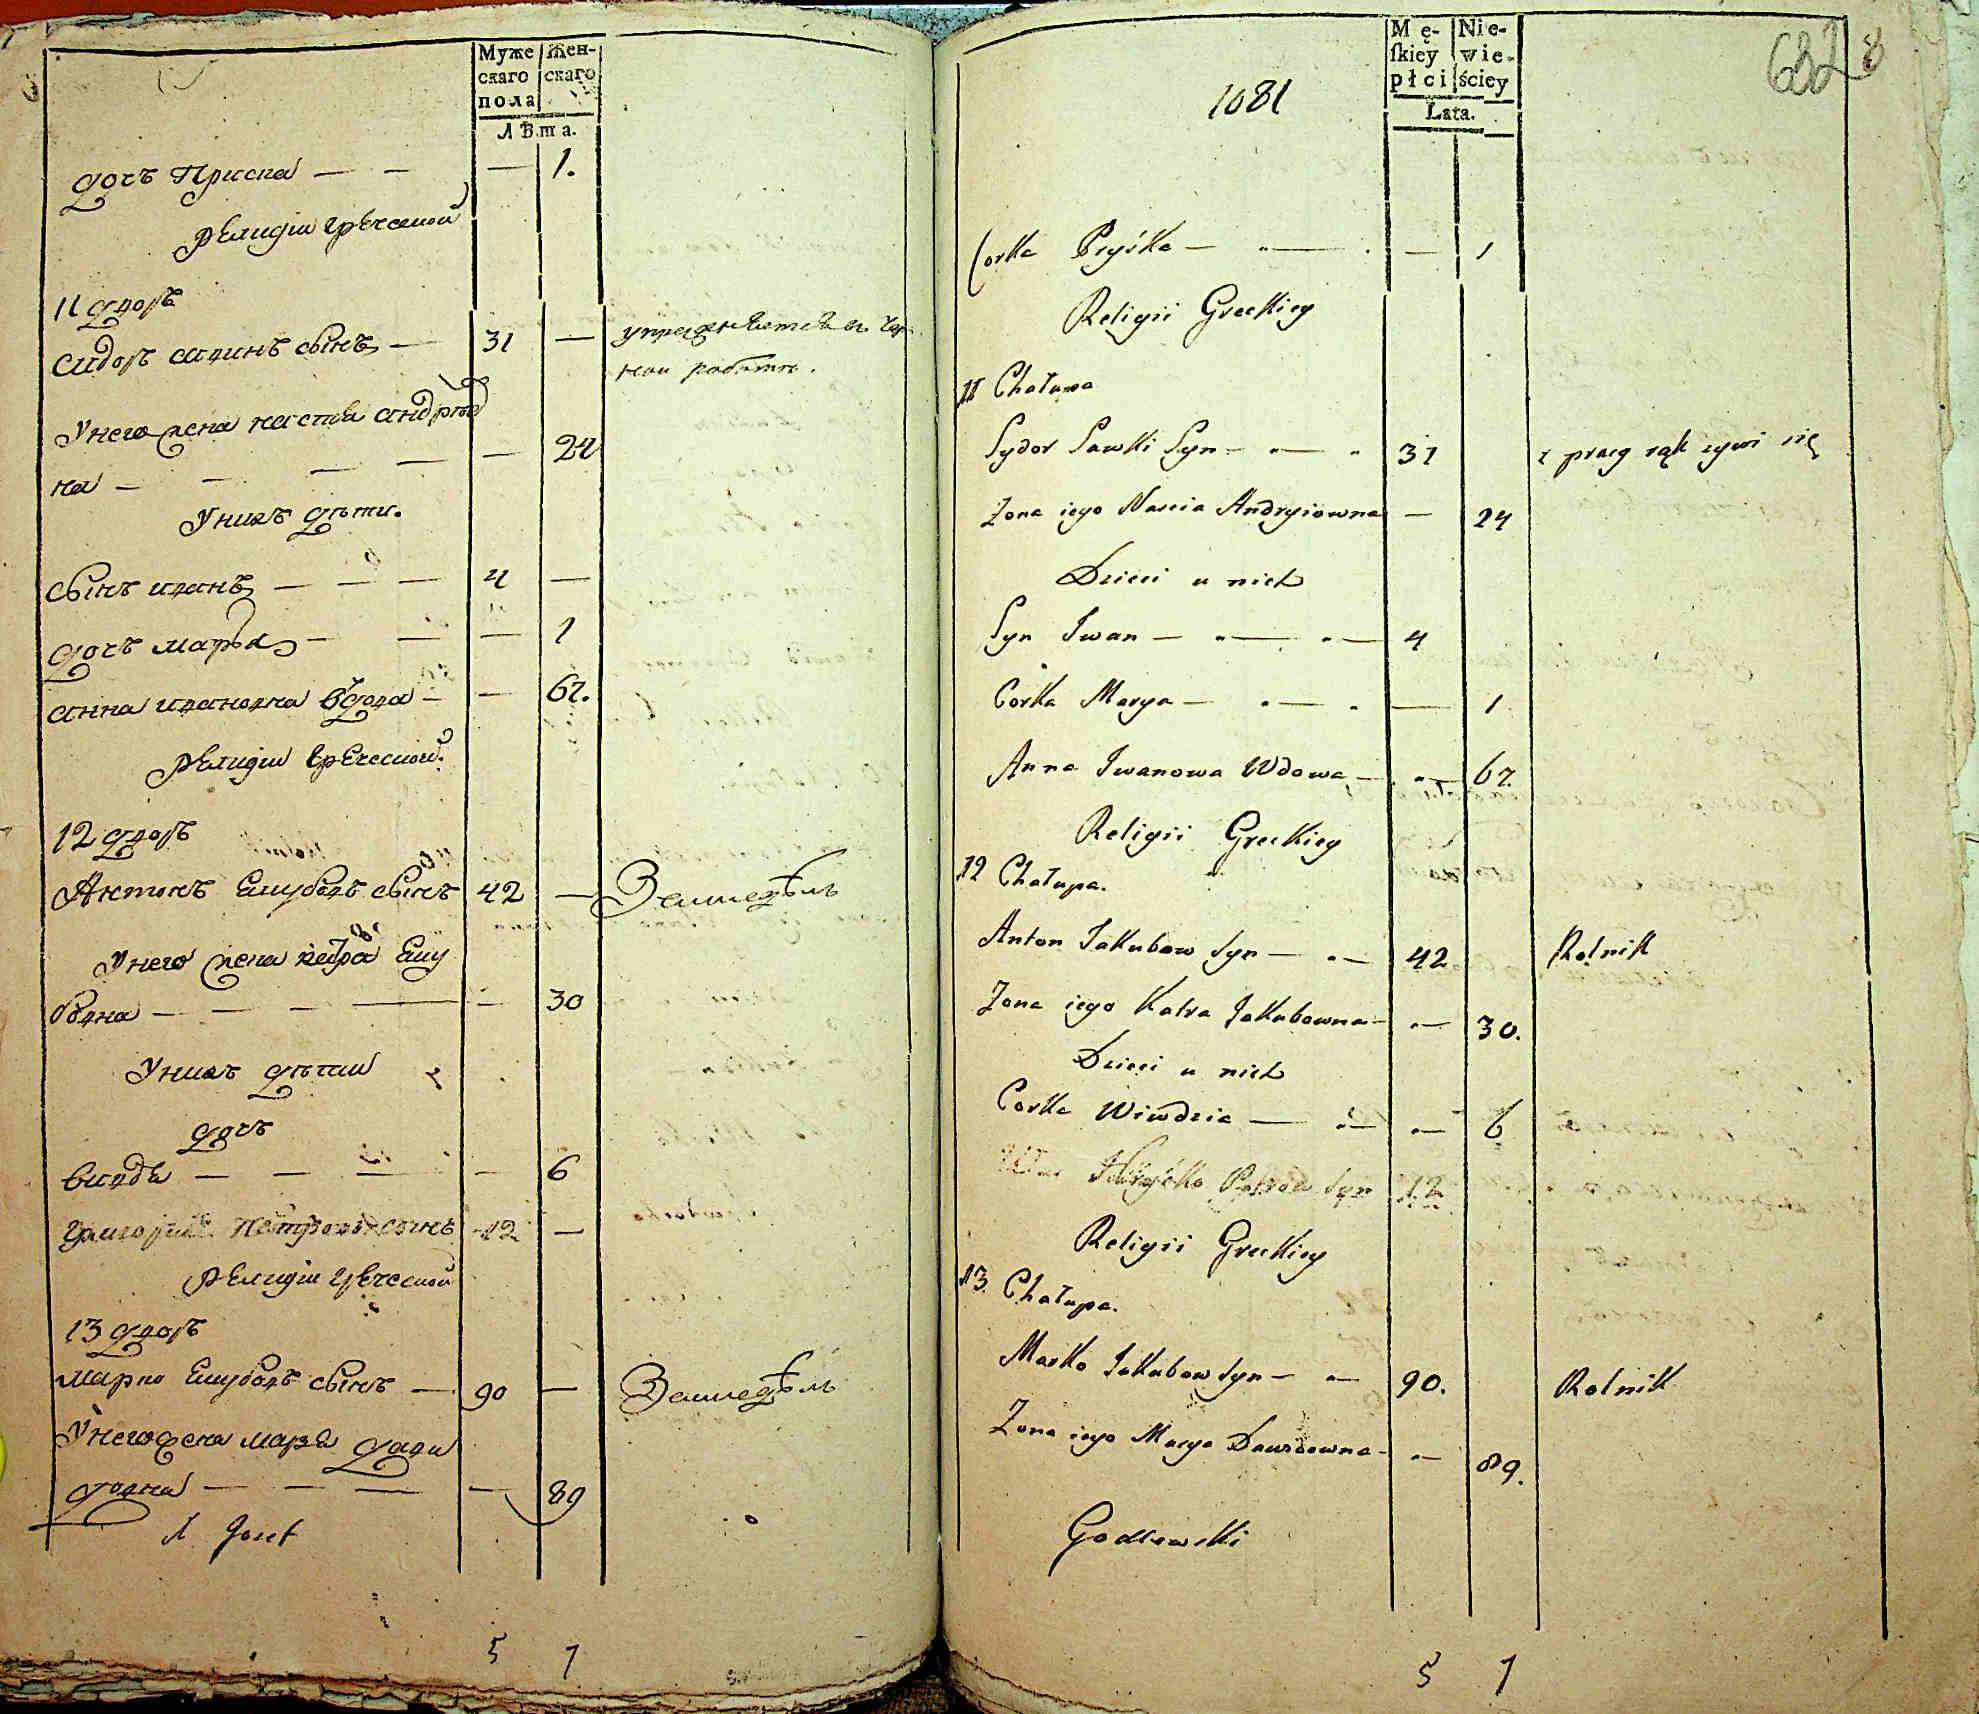 Муже
скаго
пола
Жен-
скаго
Лѣта.
дочъ Приска — — — 1.
религіи греческой
11 дворъ
Сидоръ савинъ сынъ — 31 —
упражняется в чер
ной работе.
У него жена настя андрѣе
на — — — — — 24
У нихъ дѣти.
сынъ иванъ — — — 4 —
дочъ марья — — — 1
анна ивановна вдова — — 67.
религіи греческой
12 дворъ
Антонъ Якубовъ сынъ 42 — Земледѣлъ
У него жена катра Яку
бовна — — — — — 30
У нихъ дѣти
дочъ
вивдя — — — — 6
григорий петровъ сынъ 12 —
религіи греческой
13 дворъ
марко Якубовъ сынъ — 90 — Земледѣлъ
У него жена маря дави
довна — — — — 89
X Jozef
5 7
1081
682
8
Mę-
skiey
płci
Nie-
wie-
ściey
Lata.
Corka Pryśka — — — 1
Religii Greckiey
11 Chałupa
Sydor Sawki Syn — — 31 z pracy rąk zywi się
Zona iego Nascia Andryiowna — 24
Dzieci u nich
Syn Iwan — — — 4
Corka Marya — — — 1
Anna Iwanowa Wdowa — — 67.
Religii Greckiey
12 Chałupa.
Anton Jakubow Syn — — 42 Rolnik
Zona iego Katra Jakubowna — — 30.
Dzieci u nich
Corka Wiwdzia — — — 6
Hryćko Petrow Syn 12
Religii Greckiey
13. Chałupa.
Marko Jakubow Syn — — 90. Rolnik
Zona iego Marya Dawidowna — — 89.
Godlewski
5 7